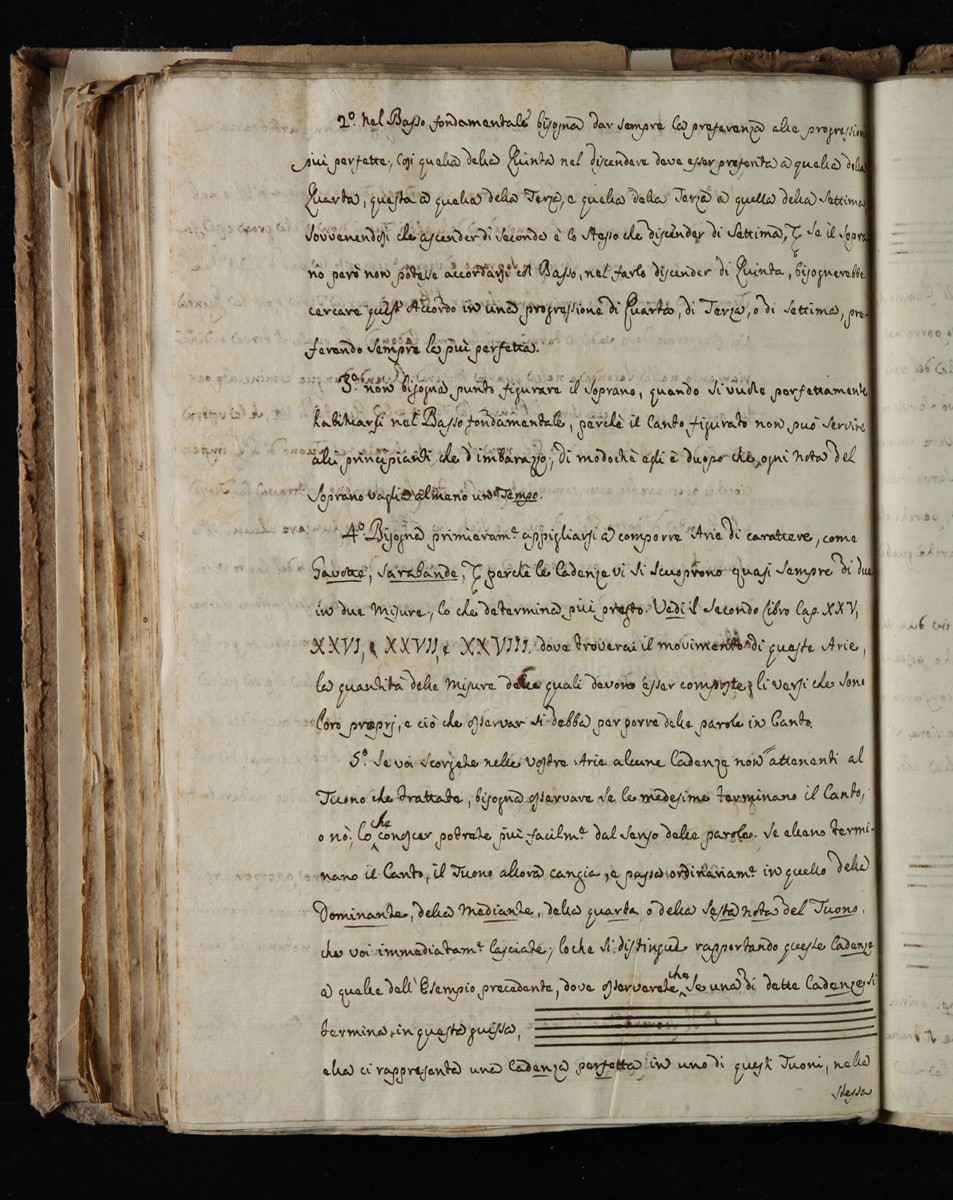 2º. Nel Basso fondamentale bisogna dar sempre la preferenza alle progressioni
più perfette; così quella della Quinta nel discendere deve esser preferita a quella della
Quarta, questa a quella della Terza, e quella della Terza a quella della Settima
sovvenendosi che ascender di Seconda è lo stesso che discender di Settima, & se il Sopra-
no però non potesse accordarsi col Basso, nel farlo discender di Quinta, bisognerebbe
cercare quest'Accordo in una progressione di Quarta, di Terza, o di Settima, pre-
ferendo sempre la più perfetta.
3º. non bisogna punto figurare il Soprano, quando si vuole perfettamente
habituarsi nel Basso fondamentale, perchè il Canto figurato non può servire
alli principianti che d'imbarazzo; di modochè egli è duopo che ogni nota del
Soprano vaglia almeno un Tempo.
4º. Bisogna primieramᵉ appigliarsi a comporre Arie di carattere, come
Gavotte, Sarabande, & perchè le Cadenze vi si scuoprono quasi sempre di due
in due Misure; lo che determina più presto. Vedi il Secondo Libro Cap. XXV,
XXVI, e XXVII, e XXVIII. dove troverai il movimento di queste Arie,
la quantità delle Misure delle quali devono esser composte, li versi che sono
loro proprj, e ciò che osservar si debba per porre delle parole in Canto.
5º. Se voi scorgete nelle vostre Arie alcune Cadenze non attenenti al
Tuono che trattate, bisogna osservare se le medesime terminano il Canto,
o nò; lo che conoscer potrete più facilmᵉ dal senso delle parole. Se elleno termi-
nano il Canto, il Tuono allora cangia, e passa ordinariamᵉ in quello della
Dominante, della Mediante, della quarta o della sesta nota del Tuono,
che voi immediatamᵉ lasciate; lo che si distingue rapportando queste Cadenze
a quelle dell'Esempio precedente, dove osserverete che se una di dette Cadenze si
termina in questa guisa,
ella ci rappresenta una Cadenza perfetta in uno di questi Tuoni, nella
stessa